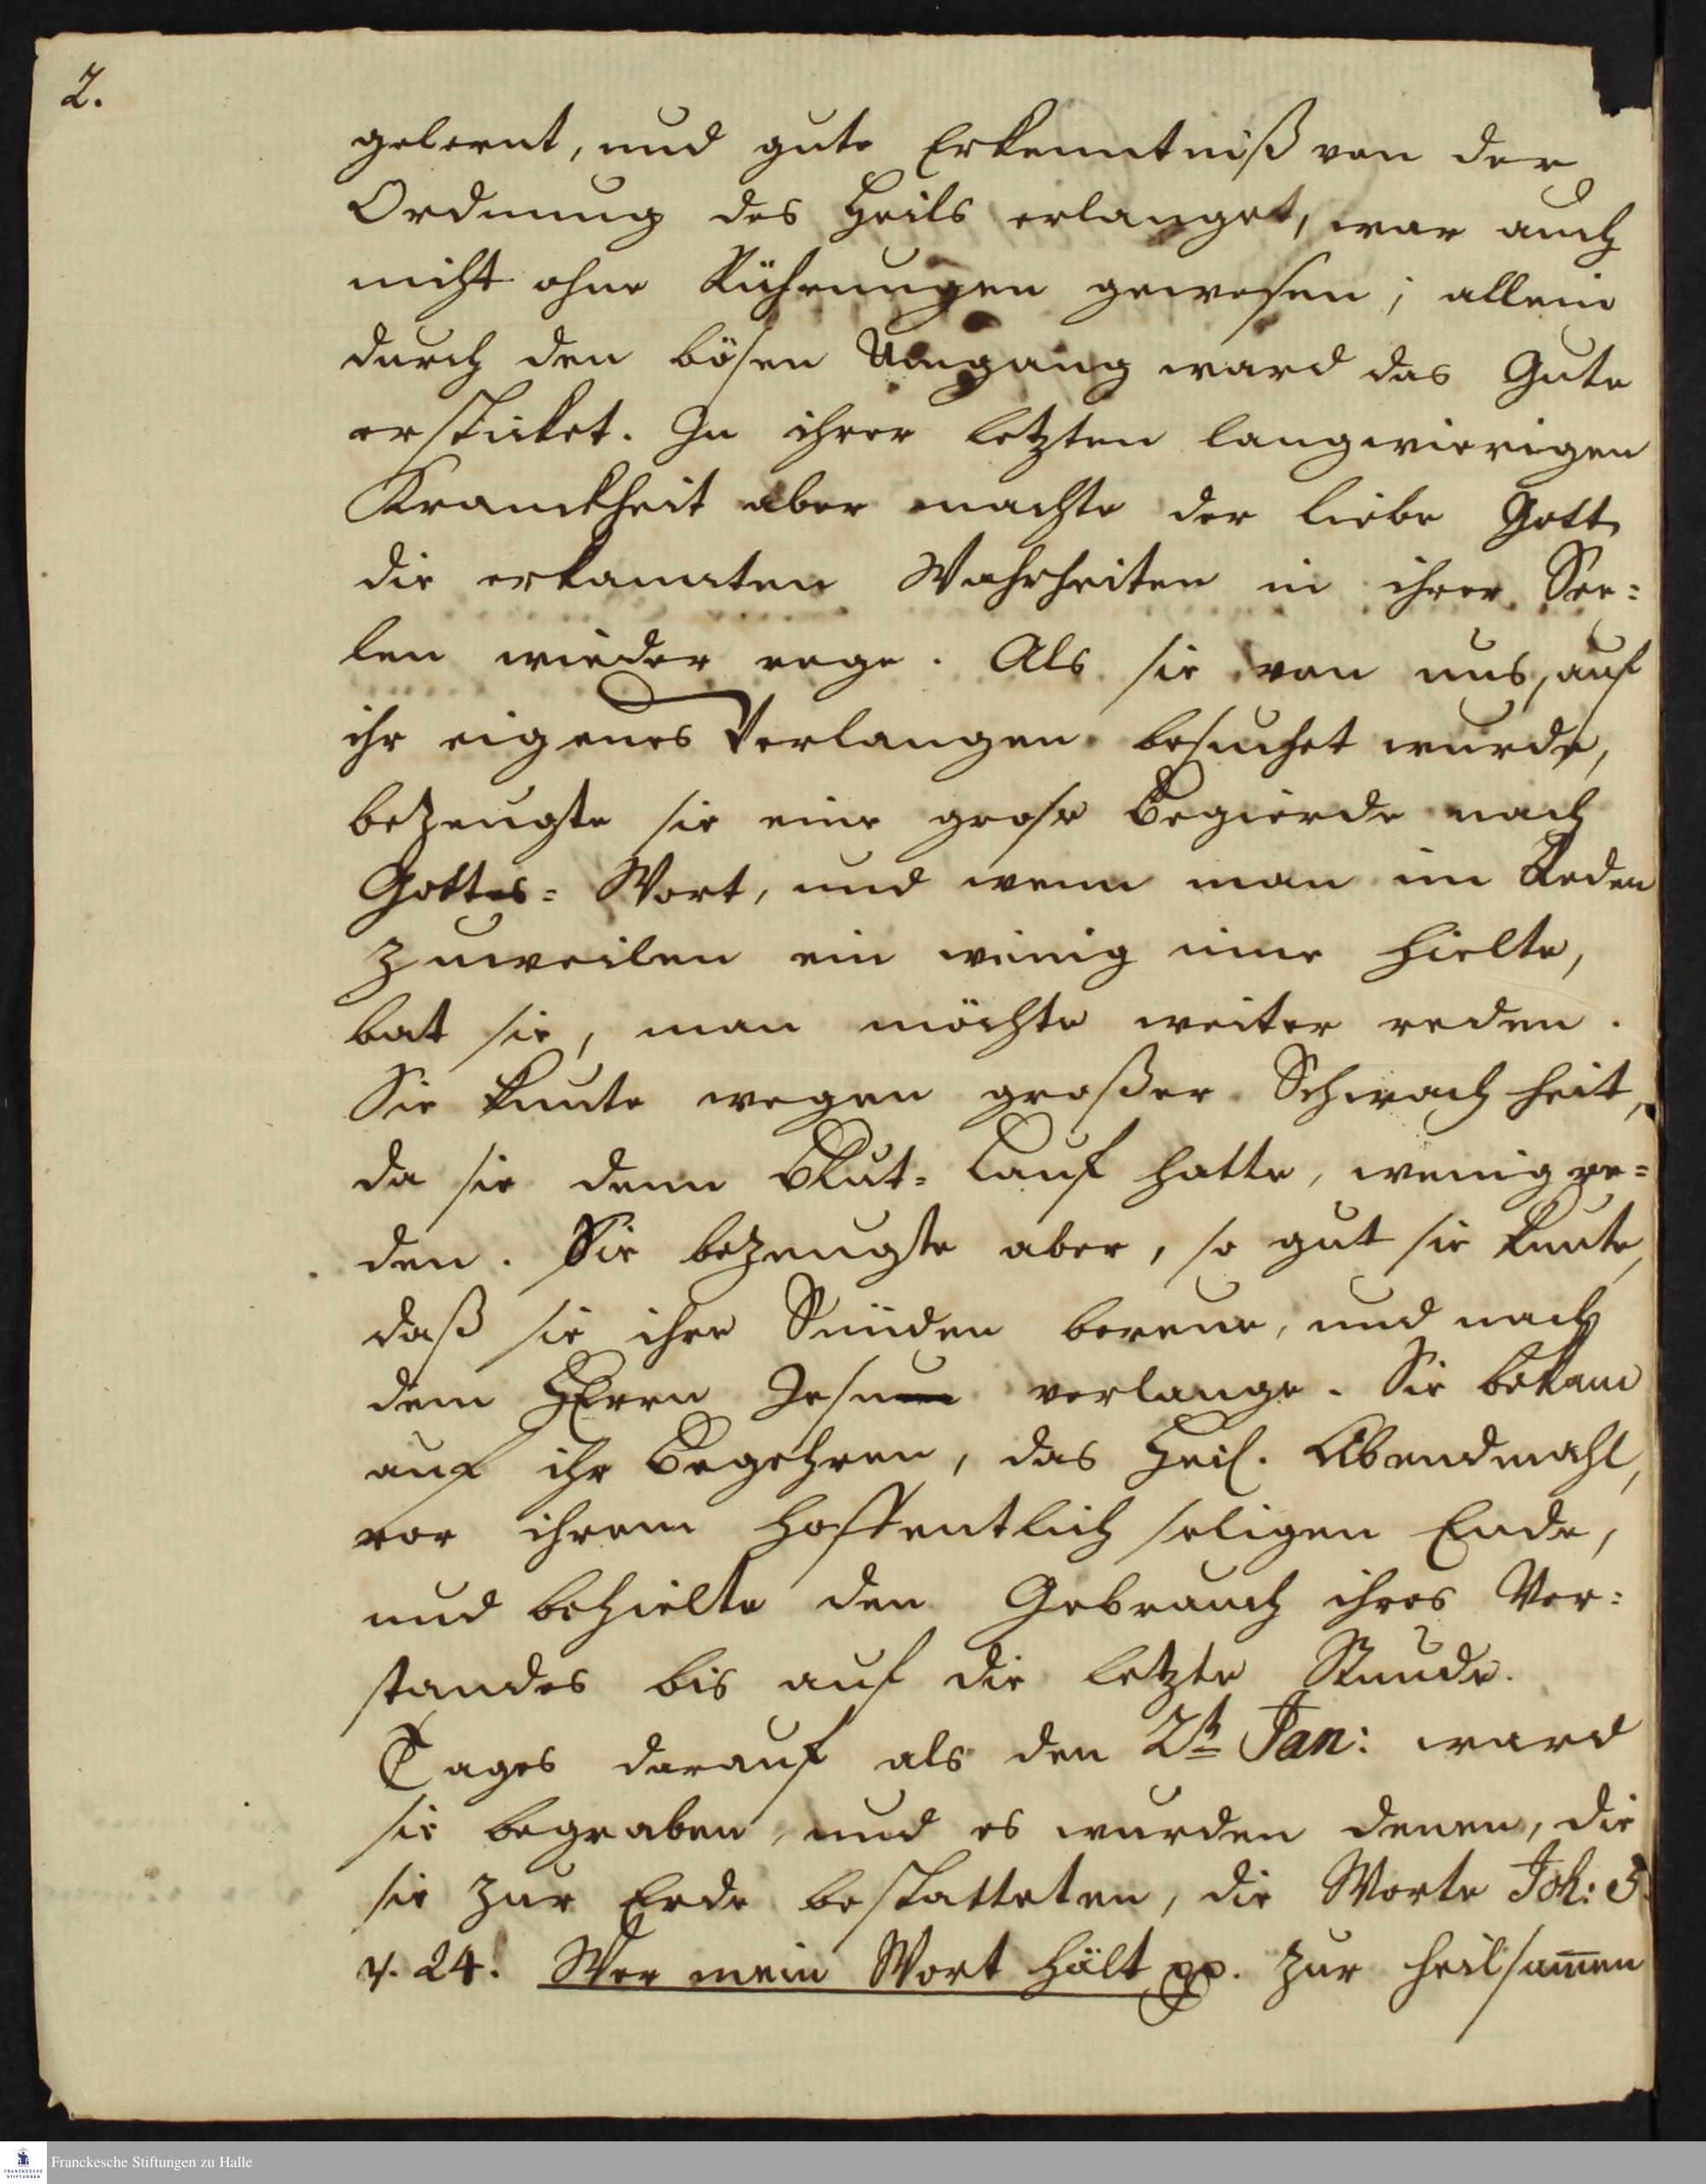 2.
gelernt, und gute Erkenntniß von der
Ordnung des Heils erlanget, war auch
nicht ohne Rührungen gewesen; allein
durch den bösen Umgang ward das Gute
ersticket. In ihrer letzten langwierigen
Kranckheit aber machte der liebe Gott
die erkannten Wahrheiten in ihrer See=
len wieder rege. Als sie von uns, auf
ihr eigenes Verlangen besuchet wurde,
bezeugte sie eine grose Begierde nach
Gottes= Wort, und wenn man im Reden
zuweilen ein wenig inne hielte,
bat sie, man möchte weiter reden.
Sie kunte wegen großer Schwachheit,
da sie denn Blut= Lauf hatte, wenig re=
den. Sie bezeugte aber, so gut sie kunte,
daß sie ihre Sünden bereue, und nach
dem HErrn Jesu verlange. Sie bekam
auf ihr Begehren, das Heil. Abendmahl,
vor ihrem hoffentlich seligen Ende,
und behielte den Gebrauch ihres Ver=
standes bis auf die letzte Stunde.
Tages darauf als den 2t Jan: ward
sie begraben, und es wurden denen, die
sie zur Erde bestatteten, die Worte Joh: 5.
v. 24. Wer mein Wort hält pp. zur heilsam̄en
Franckesche Stiftungen zu Halle